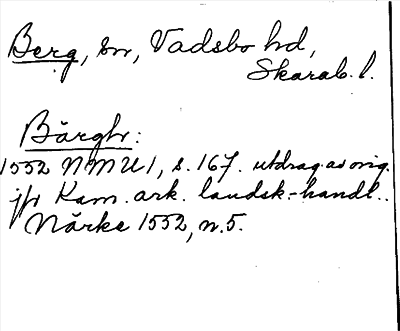 Berg, sn, Vadsbo hd,
Skarab. l.
Bärghr:
1552 NMU 1, s. 167. utdrag av orig.
jfr Kam. ark. landsk.-handl..
Närke 1552, n. 5.